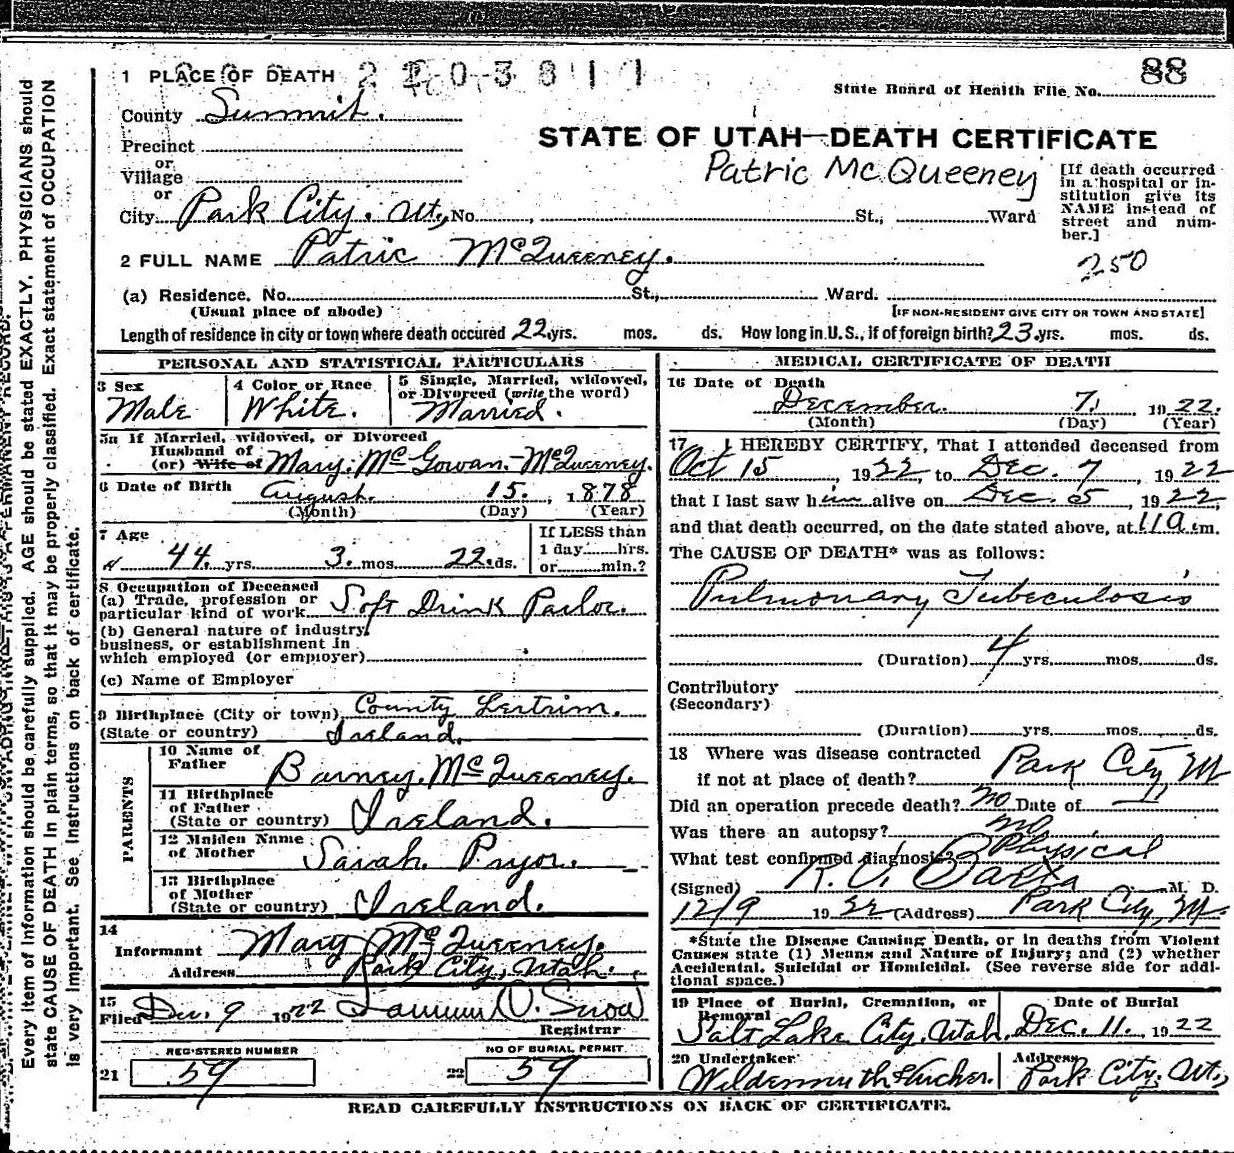 1 PLACE OF DEATH 2203811
88
State Board of Health File No.
County Summit.
STATE OF UTAH—DEATH CERTIFICATE
Precinct
or
Village
or
Patric McQueeney
[If death occurred in a hospital or institution give its NAME instead of street and number.]
City Park City. Ut., No. , St., Ward
2 FULL NAME Patric McQueeney.
250
(a) Residence. No. St., Ward.
(Usual place of abode) [IF NON-RESIDENT GIVE CITY OR TOWN AND STATE]
Length of residence in city or town where death occured 22 yrs. mos. ds. How long in U.S., if of foreign birth? 23 yrs. mos. ds.
PERSONAL AND STATISTICAL PARTICULARS
3 Sex
Male
4 Color or Race
White.
5 Single, Married, widowed, or Divorced (write the word)
Married.
5a If Married, widowed, or Divorced
Husband of
(or) Wife of Mary. McGowan.-McQueeney.
6 Date of Birth August. 15. , 1878
(Month) (Day) (Year)
7 Age
44. yrs. 3. mos. 22. ds.
If LESS than
1 day hrs.
or min.?
8 Occupation of Deceased
(a) Trade, profession or
particular kind of work Soft Drink Parlor.
(b) General nature of industry,
business, or establishment in
which employed (or employer)
(c) Name of Employer
9 Birthplace (City or town) County Lertrim.
(State or country) Ireland.
PARENTS
10 Name of
Father Barney. McQueeney.
11 Birthplace
of Father
(State or country) Ireland.
12 Maiden Name
of Mother Sarah. Pryor.
13 Birthplace
of Mother
(State or country) Ireland.
14
Informant Mary McQueeney.
Address Park City, Utah.
15
Filed Dec. 9 1922
Snow
Registrar
REGISTERED NUMBER
21 59
NO OF BURIAL PERMIT
22 59
MEDICAL CERTIFICATE OF DEATH
16 Date of Death
December. 7. , 1922.
(Month) (Day) (Year)
17 I HEREBY CERTIFY, That I attended deceased from
Oct 15 , 1922, to Dec. 7 , 1922
that I last saw him alive on Dec. 5 , 1922,
and that death occurred, on the date stated above, at 11 a. m.
The CAUSE OF DEATH* was as follows:
Pulmonary Tubeculosis
(Duration) 4 yrs. mos. ds.
Contributory
(Secondary)
(Duration) yrs. mos. ds.
18 Where was disease contracted
if not at place of death? Park City, Ut
Did an operation precede death? no Date of
Was there an autopsy? no
What test confirmed diagnosis? Physical
(Signed) M. D.
12/9 1922 (Address) Park City, Ut.
*State the Disease Causing Death, or in deaths from Violent
Causes state (1) Means and Nature of Injury; and (2) whether
Accidental, Suicidal or Homicidal. (See reverse side for additional space.)
19 Place of Burial, Cremation, or Removal
Salt Lake City, Utah.
Date of Burial
Dec. 11. 1922
20 Undertaker
Address
Park City, Ut.,
READ CAREFULLY INSTRUCTIONS ON BACK OF CERTIFICATE.
Every item of information should be carefully supplied. AGE should be stated EXACTLY. PHYSICIANS should
state CAUSE OF DEATH in plain terms, so that it may be properly classified. Exact statement of OCCUPATION
is very important. See instructions on back of certificate.